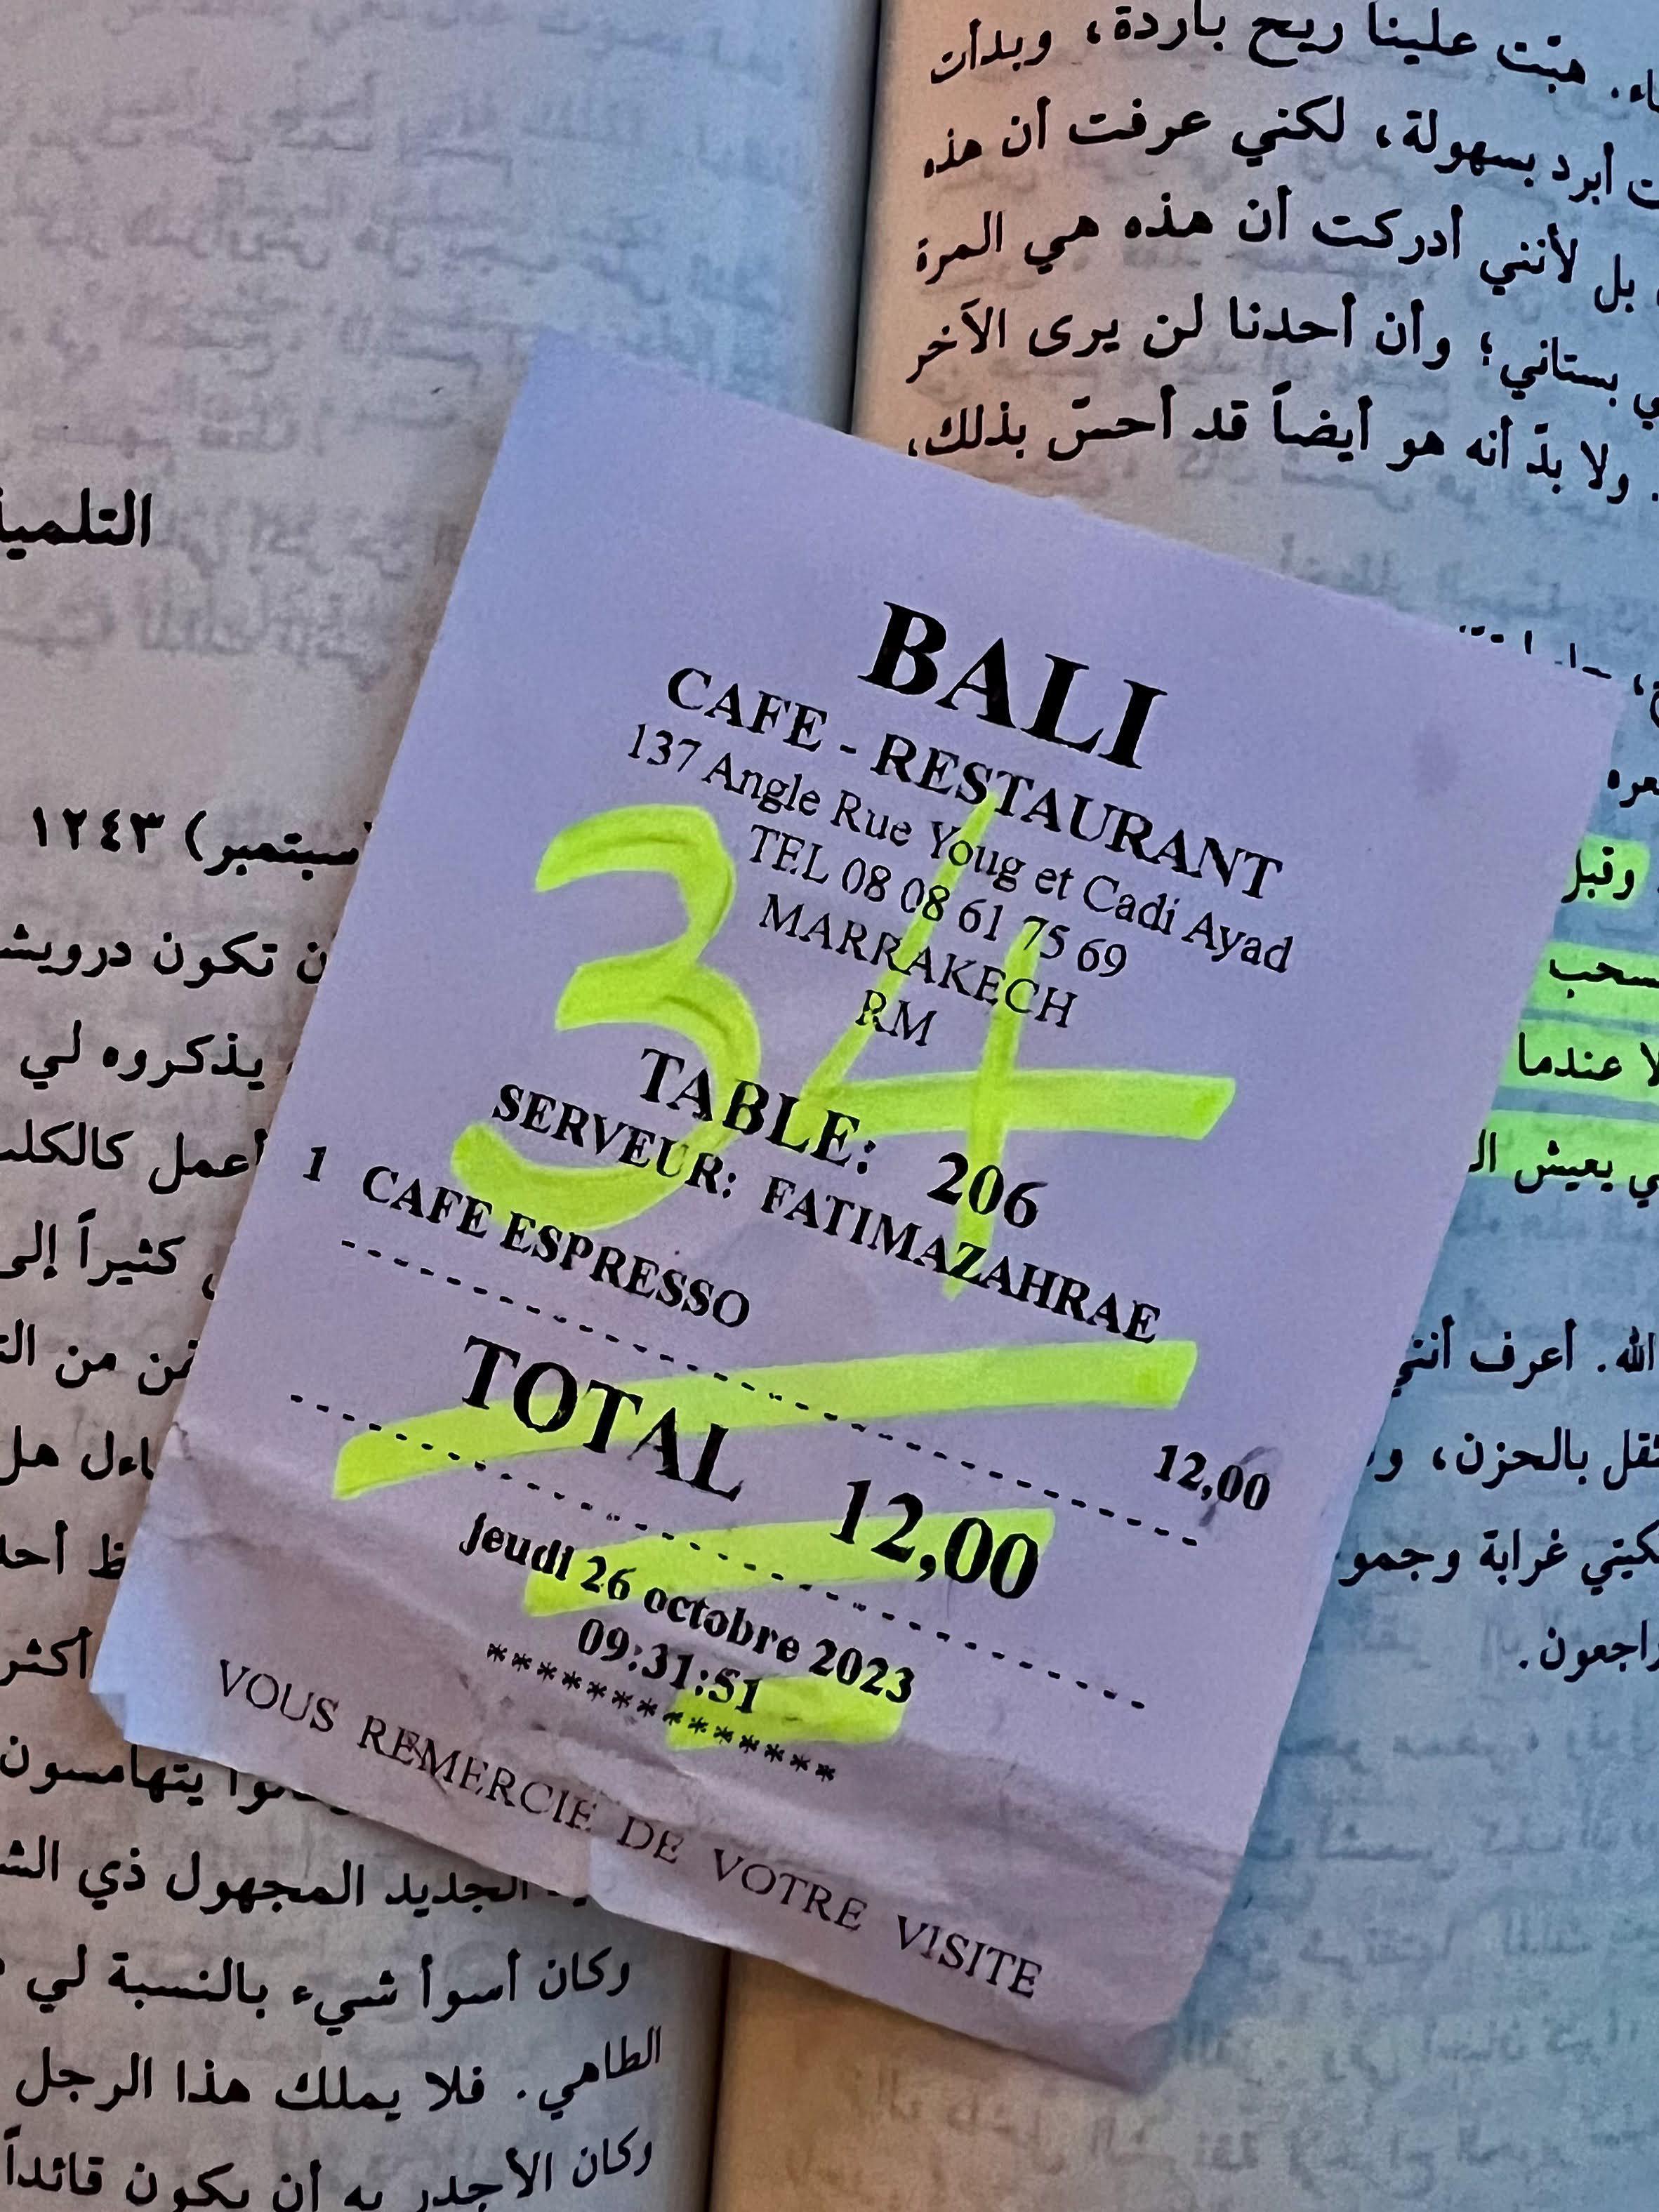 هبّت علينا ريح باردة، وبدأت
أبرد بسهولة، لكني عرفت أن هذه
بل لأنني أدركت أن هذه هي المرة
بستاني؛ وأن أحدنا لن يرى الآخر
ولا بدّ أنه هو أيضاً قد أحسّ بذلك،
وقبل
عندما
يعيش
الله. أعرف أنني
بالحزن،
غرابة
راجعون.
(سبتمبر) ١٢٤٣
تكون
يذكروه لي
أعمل
كثيراً إلى
من
هل
أكثر
يتهامسون
الجديد المجهول ذي
وكان أسوأ شيء بالنسبة لي
الطاهي. فلا يملك هذا الرجل
وكان الأجدر به أن يكون قائداً
BALI
CAFE - RESTAURANT
137 Angle Rue Youg et Cadi Ayad
TEL 08 08 61 75 69
MARRAKECH
RM
34
TABLE: 206
SERVEUR: FATIMAZAHRAE
1 CAFE ESPRESSO 12,00
TOTAL 12,00
jeudi 26 octobre 2023
09:31:51
**************
VOUS REMERCIE DE VOTRE VISITE